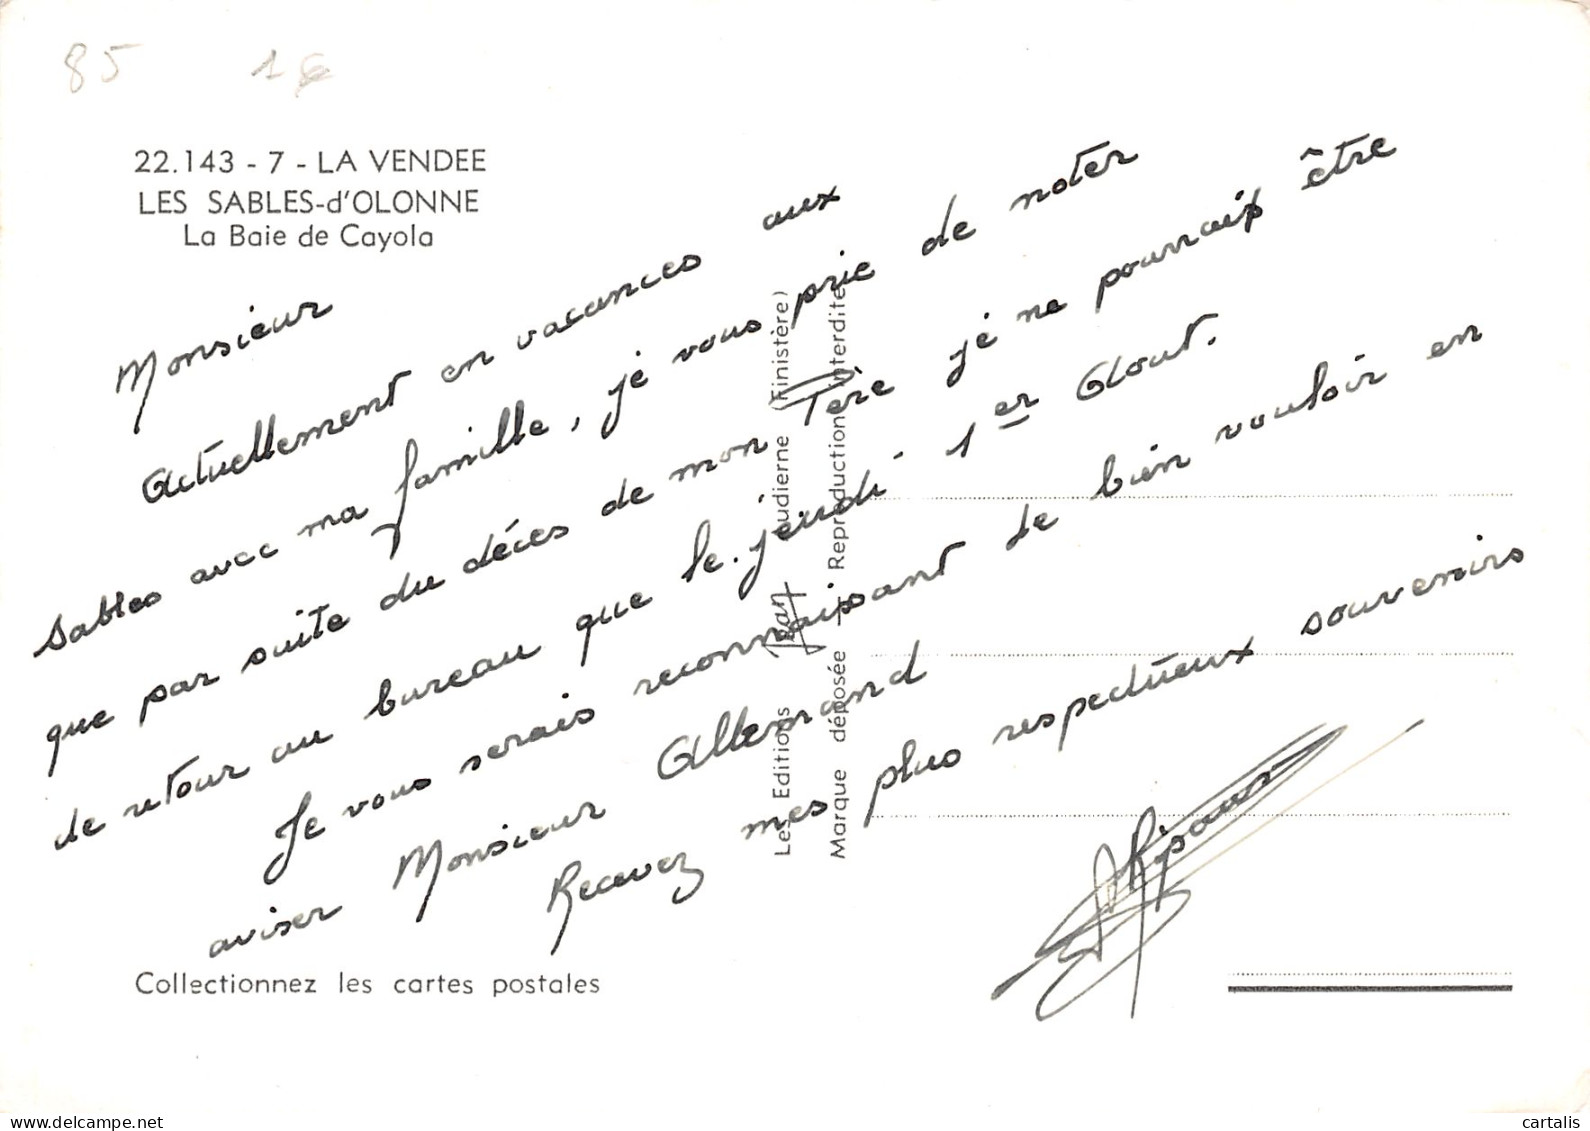 85 1€
22.143 - 7 - LA VENDEE
LES SABLES-d'OLONNE
La Baie de Cayola
Monsieur
Actuellement en vacances aux
Sables avec ma famille, je vous prie de noter
que par suite du décès de mon Père je ne pourrais être
de retour au bureau que le jeudi 1er Aout.
Je vous serais reconnaissant de bien vouloir en
aviser Monsieur Allemand
Recevez mes plus respectueux souvenirs
Collectionnez les cartes postales
Les Editions Jean Audierne (Finistère)
Marque déposée - Reproduction interdite
delcampe.net
cartalis